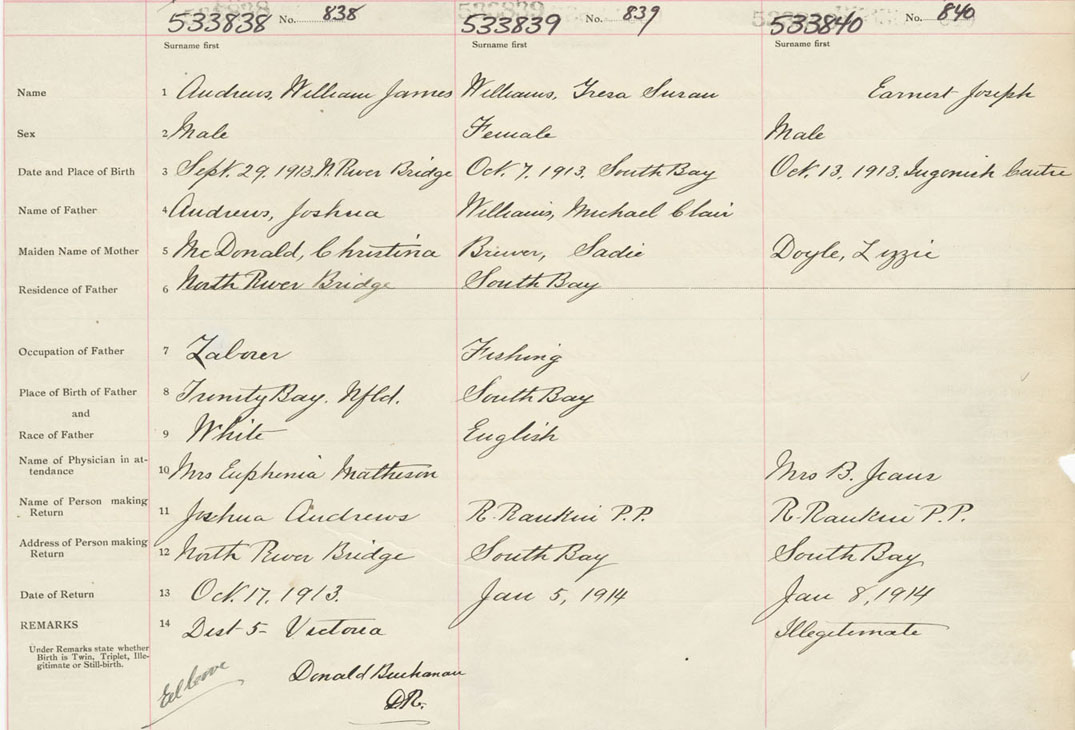 533838 No. 838 533839 No. 839 533840 No. 840
Surname first Surname first Surname first
Name 1 Andrews, William James Williams, Tresa Susan Earnest Joseph
Sex 2 Male Female Male
Date and Place of Birth 3 Sept. 29, 1913. N. River Bridge Oct. 7, 1913, South Bay Oct. 13, 1913, Ingonish Centre
Name of Father 4 Andrews, Joshua Williams, Michael Clair
Maiden Name of Mother 5 McDonald, Christina Brewer, Sadie Doyle, Lizzie
Residence of Father 6 North River Bridge South Bay
Occupation of Father 7 Laborer Fishing
Place of Birth of Father 8 Trinity Bay. Nfld. South Bay
and
Race of Father 9 White English
Name of Physician in at-
tendance 10 Mrs Euphenia Matheson Mrs B.
Name of Person making
Return 11 Joshua Andrews R. Rankin P.P. R. Rankin P.P.
Address of Person making
Return 12 North River Bridge South Bay South Bay
Date of Return 13 Oct. 17, 1913. Jan 5, 1914 Jan 8, 1914
REMARKS 14 Dist 5- Victoria Illegitimate
Under Remarks state whether
Birth is Twin, Triplet, Ille-
gitimate or Still-birth.
Donald Buchanan
D.R.